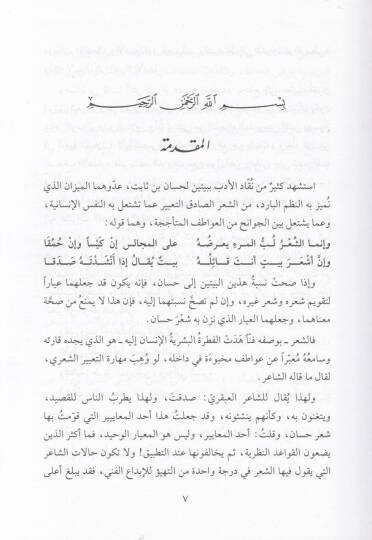 بِسْمِ اللَّهِ الرَّحْمَنِ الرَّحِيمِ
المقدمة
استشهد كثيرٌ من نُقّاد الأدب ببيتين لحسان بن ثابت، عدّوهما الميزان الذي
نُميز به النظم البارد، من الشعر الصادق التعبير عما تشتعل به النفس الإنسانية،
وعما يشتعل بين الجوانح من العواطف المتأججة، وهما قوله:
وإنما الشِّعْرُ لُبُّ المرءِ يعرضُهُ على المجالس إنْ كَيْساً وإنْ حُمُقَا
وإنَّ أَشْعَرَ بيتٍ أنتَ قائِلُهُ بيتٌ يُقالُ إذا أَنْشَدْتَهُ صَدَقَا
وإذا صحتْ نسبةُ هذين البيتين إلى حسان، فإنه يكون قد جعلهما عياراً
لتقويم شعره وشعر غيره، وإن لم تصحَّ نسبتهما إليه، فإن هذا لا يمنعُ من صحّة
معناهما، وجعلهما العيار الذي نزن به شعْرَ حسان.
فالشعر ـ بوصفه فنّاً هَدَتْ الفطرةُ البشريةُ الإنسان إليه ـ هو الذي يجده قارئه
وسامعُهُ مُعبّراً عن عواطف مخبوءة في داخله، لو وُهِبَ مهارة التعبير الشعري،
لقال ما قاله الشاعر.
ولهذا يُقال للشاعر العبقريّ: صدقتَ، ولهذا يطربُ الناس للقصيد،
ويتغنون به، وكأنهم ينشئونه، وقد جعلتُ هذا أحد المعايير التي قوّمتُ بها
شعر حسان، وقلتُ: أحد المعايير، وليس هو المعيار الوحيد، فما أكثر الذين
يضعون القواعد النظرية، ثم يخالفونها عند التطبيق! ولا تكون حالات الشاعر
التي يقول فيها الشعر في درجة واحدة من التهيؤ للإبداع الفني، فقد يبلغ أعلى
٧